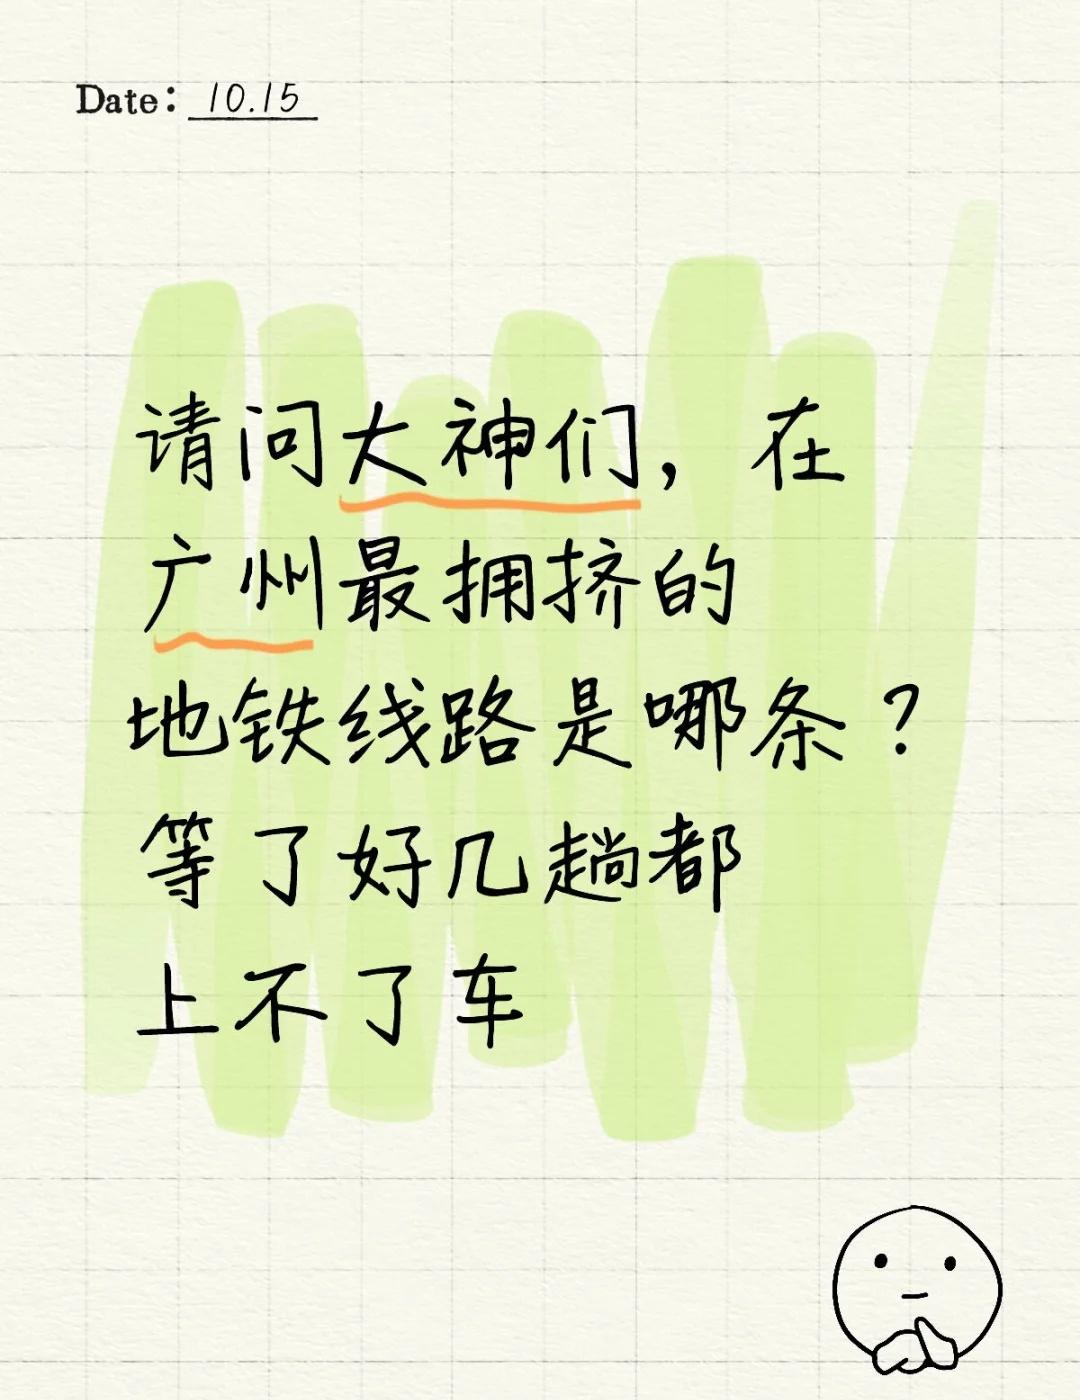 Date: 10.15
请问大神们，在
广州最拥挤的
地铁线路是哪条？
等了好几趟都
上不了车